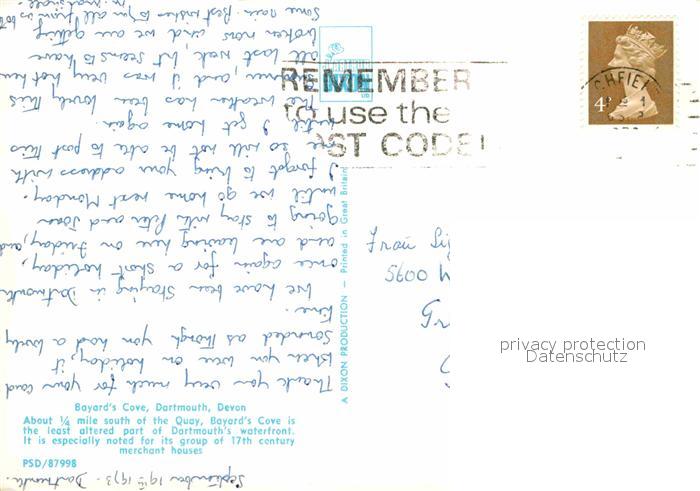 September 19th 1973. Dartmouth.
Thank you very much for your card
when you were on holiday, it
sounded as though you had a lovely
time.
We have been staying in Dartmouth
once again for a short holiday,
and are leaving here on Friday, and
going to stay with Peter and Joan
until we go home next Monday.
I forgot to bring your address with
me so will not be able to post this
until I get home again.
The weather has been lovely this
summer, and it was very hot here
all last week, but seems to have
broken now and we are getting
some rain. Best wishes to you all from us both
REMEMBER
to use the
POST CODE!
4P
Frau
5600
A DIXON PRODUCTION — Printed in Great Britain
privacy protection
Datenschutz
Bayard's Cove, Dartmouth, Devon
About ¼ mile south of the Quay, Bayard's Cove is
the least altered part of Dartmouth's waterfront.
It is especially noted for its group of 17th century
merchant houses
PSD/87998